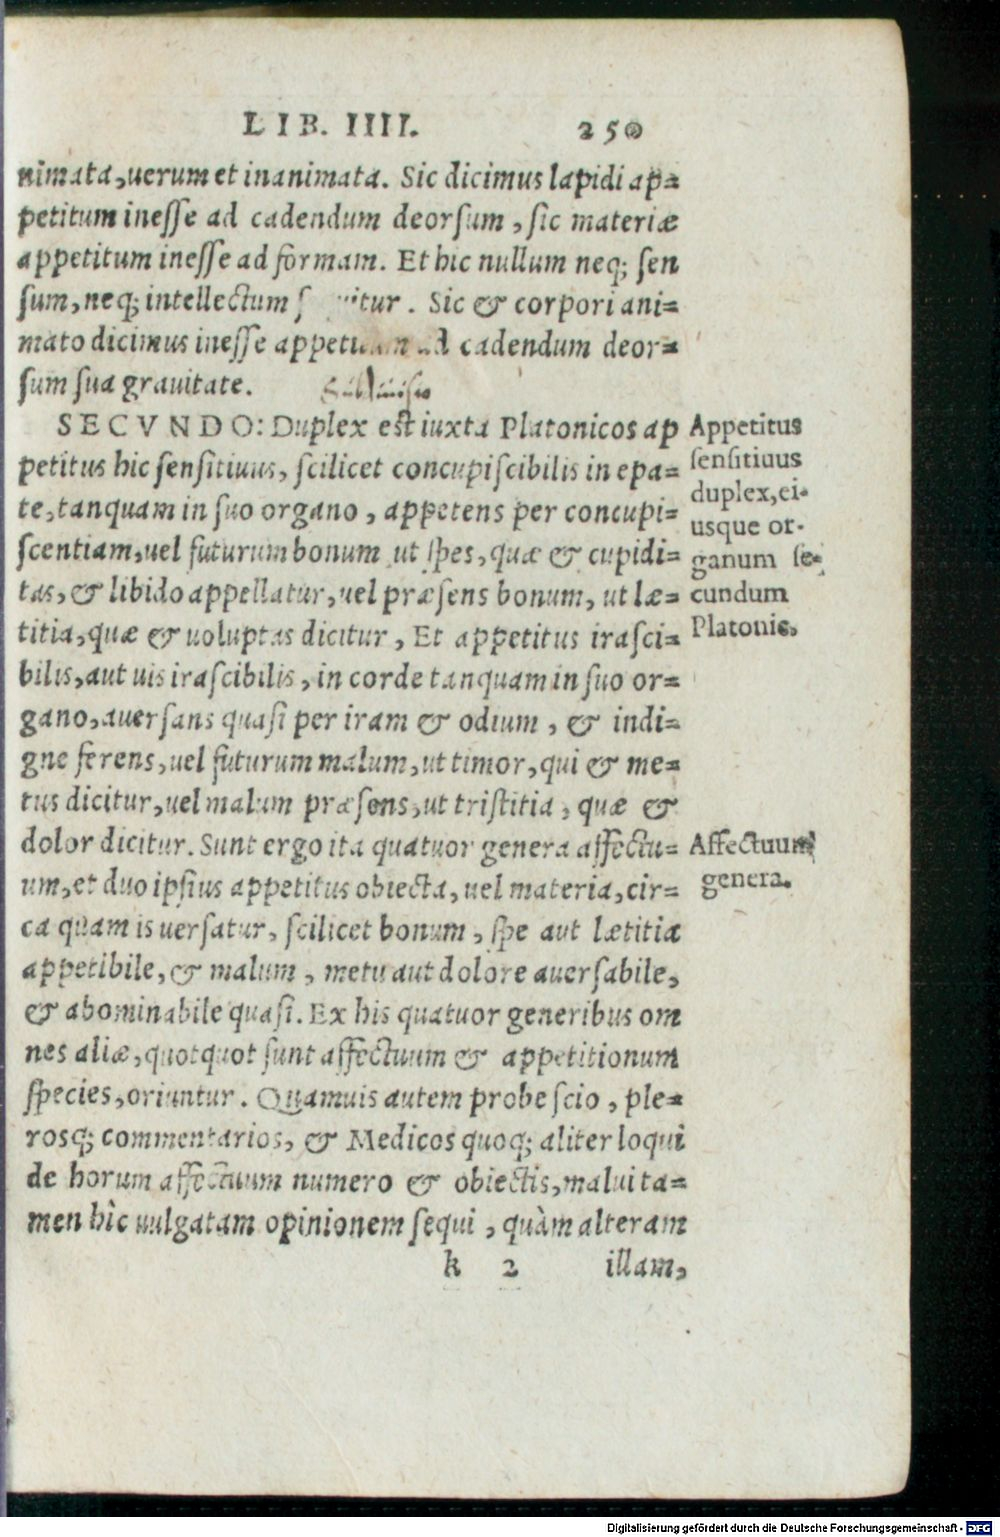 LIB. IIII. 250
nimata, uerum et inanimata. Sic dicimus lapidi ap=
petitum inesse ad cadendum deorsum, sic materiæ
appetitum inesse ad formam. Et hic nullum neq; sen
sum, neq; intellectum Sic & corpori ani=
mato dicimus inesse appetitum ad cadendum deor=
sum sua grauitate.
SECVNDO: Duplex est iuxta Platonicos ap
petitus hic sensitiuus, scilicet concupiscibilis in epa=
te, tanquam in suo organo, appetens per concupi=
scentiam, uel futurum bonum ut spes, quæ & cupidi=
tas, & libido appellatur, uel præsens bonum, ut læ=
titia, quæ & uoluptas dicitur, Et appetitus irasci=
bilis, aut uis irascibilis, in corde tanquam in suo or=
gano, auersans quasi per iram & odium, & indi=
gne ferens, uel futurum malum, ut timor, qui & me=
tus dicitur, uel malum præsens, ut tristitia, quæ &
dolor dicitur. Sunt ergo ita quatuor genera affectu=
um, et duo ipsius appetitus obiecta, uel materia, cir=
ca quam is uersatur, scilicet bonum, spe aut lætitia
appetibile, & malum, metu aut dolore auersabile,
& abominabile quasi. Ex his quatuor generibus om
nes aliæ, quotquot sunt affectuum & appetitionum
species, oriuntur. Quamuis autem probe scio, ple=
rosq; commentarios, & Medicos quoq; aliter loqui
de horum affectuum numero & obiectis, malui ta=
men hìc uulgatam opinionem sequi, quàm alteram
k 2 illam,
Appetitus
sensitiuus
duplex, ei-
usque or-
ganum se-
cundum
Platonic.
Affectuum
genera.
Digitalisierung gefördert durch die Deutsche Forschungsgemeinschaft - DFG